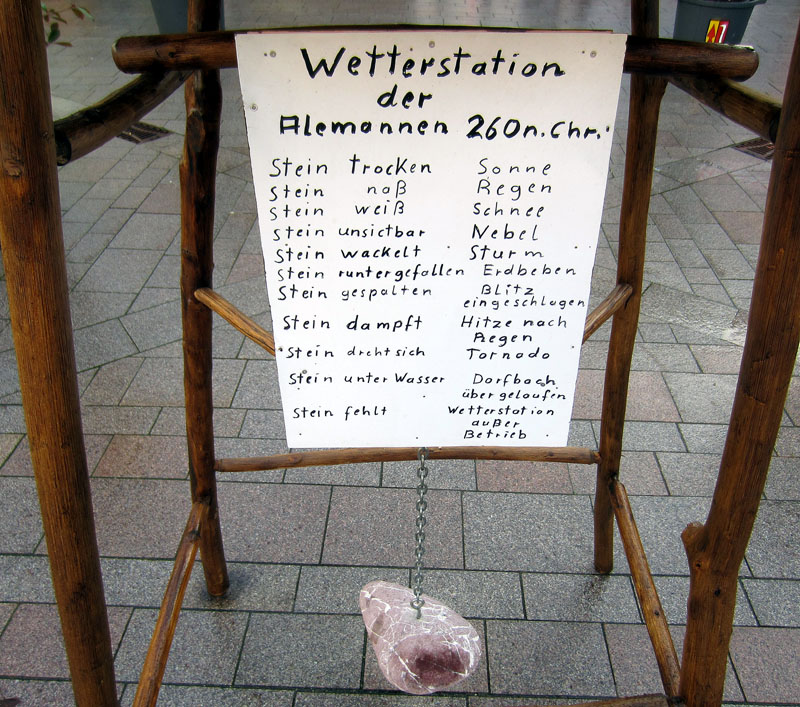 Wetterstation
der
Alemannen 260 n. Chr.
Stein trocken Sonne
Stein naß Regen
Stein weiß Schnee
Stein unsictbar Nebel
Stein wackelt Sturm
Stein runtergefallen Erdbeben
Stein gespalten Blitz
eingeschlagen
Stein dampft Hitze nach
Regen
Stein dreht sich Tornado
Stein unter Wasser Dorfbach
übergelaufen
Stein fehlt Wetterstation
außer
Betrieb